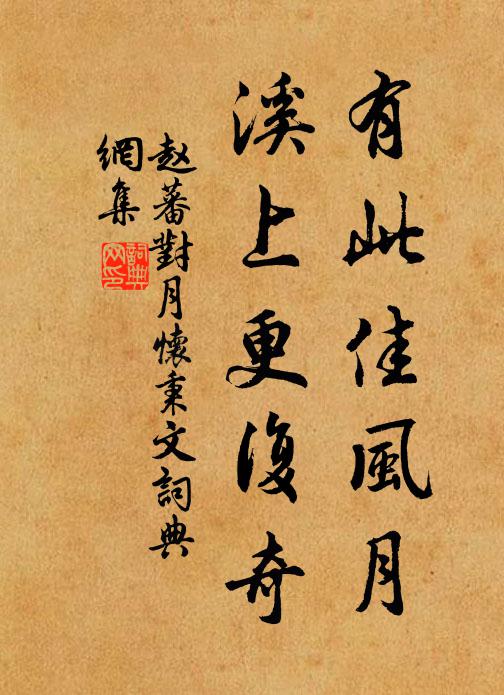 有此佳風月
溪上更復奇
赵蕃對月懷秉文詞典
網集
詞典網印